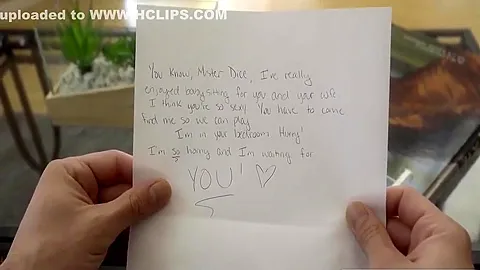 uploaded to WWW.HCLIPS.COM
You know, Mister Dice, I've really
enjoyed babysitting for you and your wife
I think you're so sexy. You have to come
find me so we can play
I'm in your bedroom. Hurry!
I'm so horny and I'm waiting for
YOU! ♡